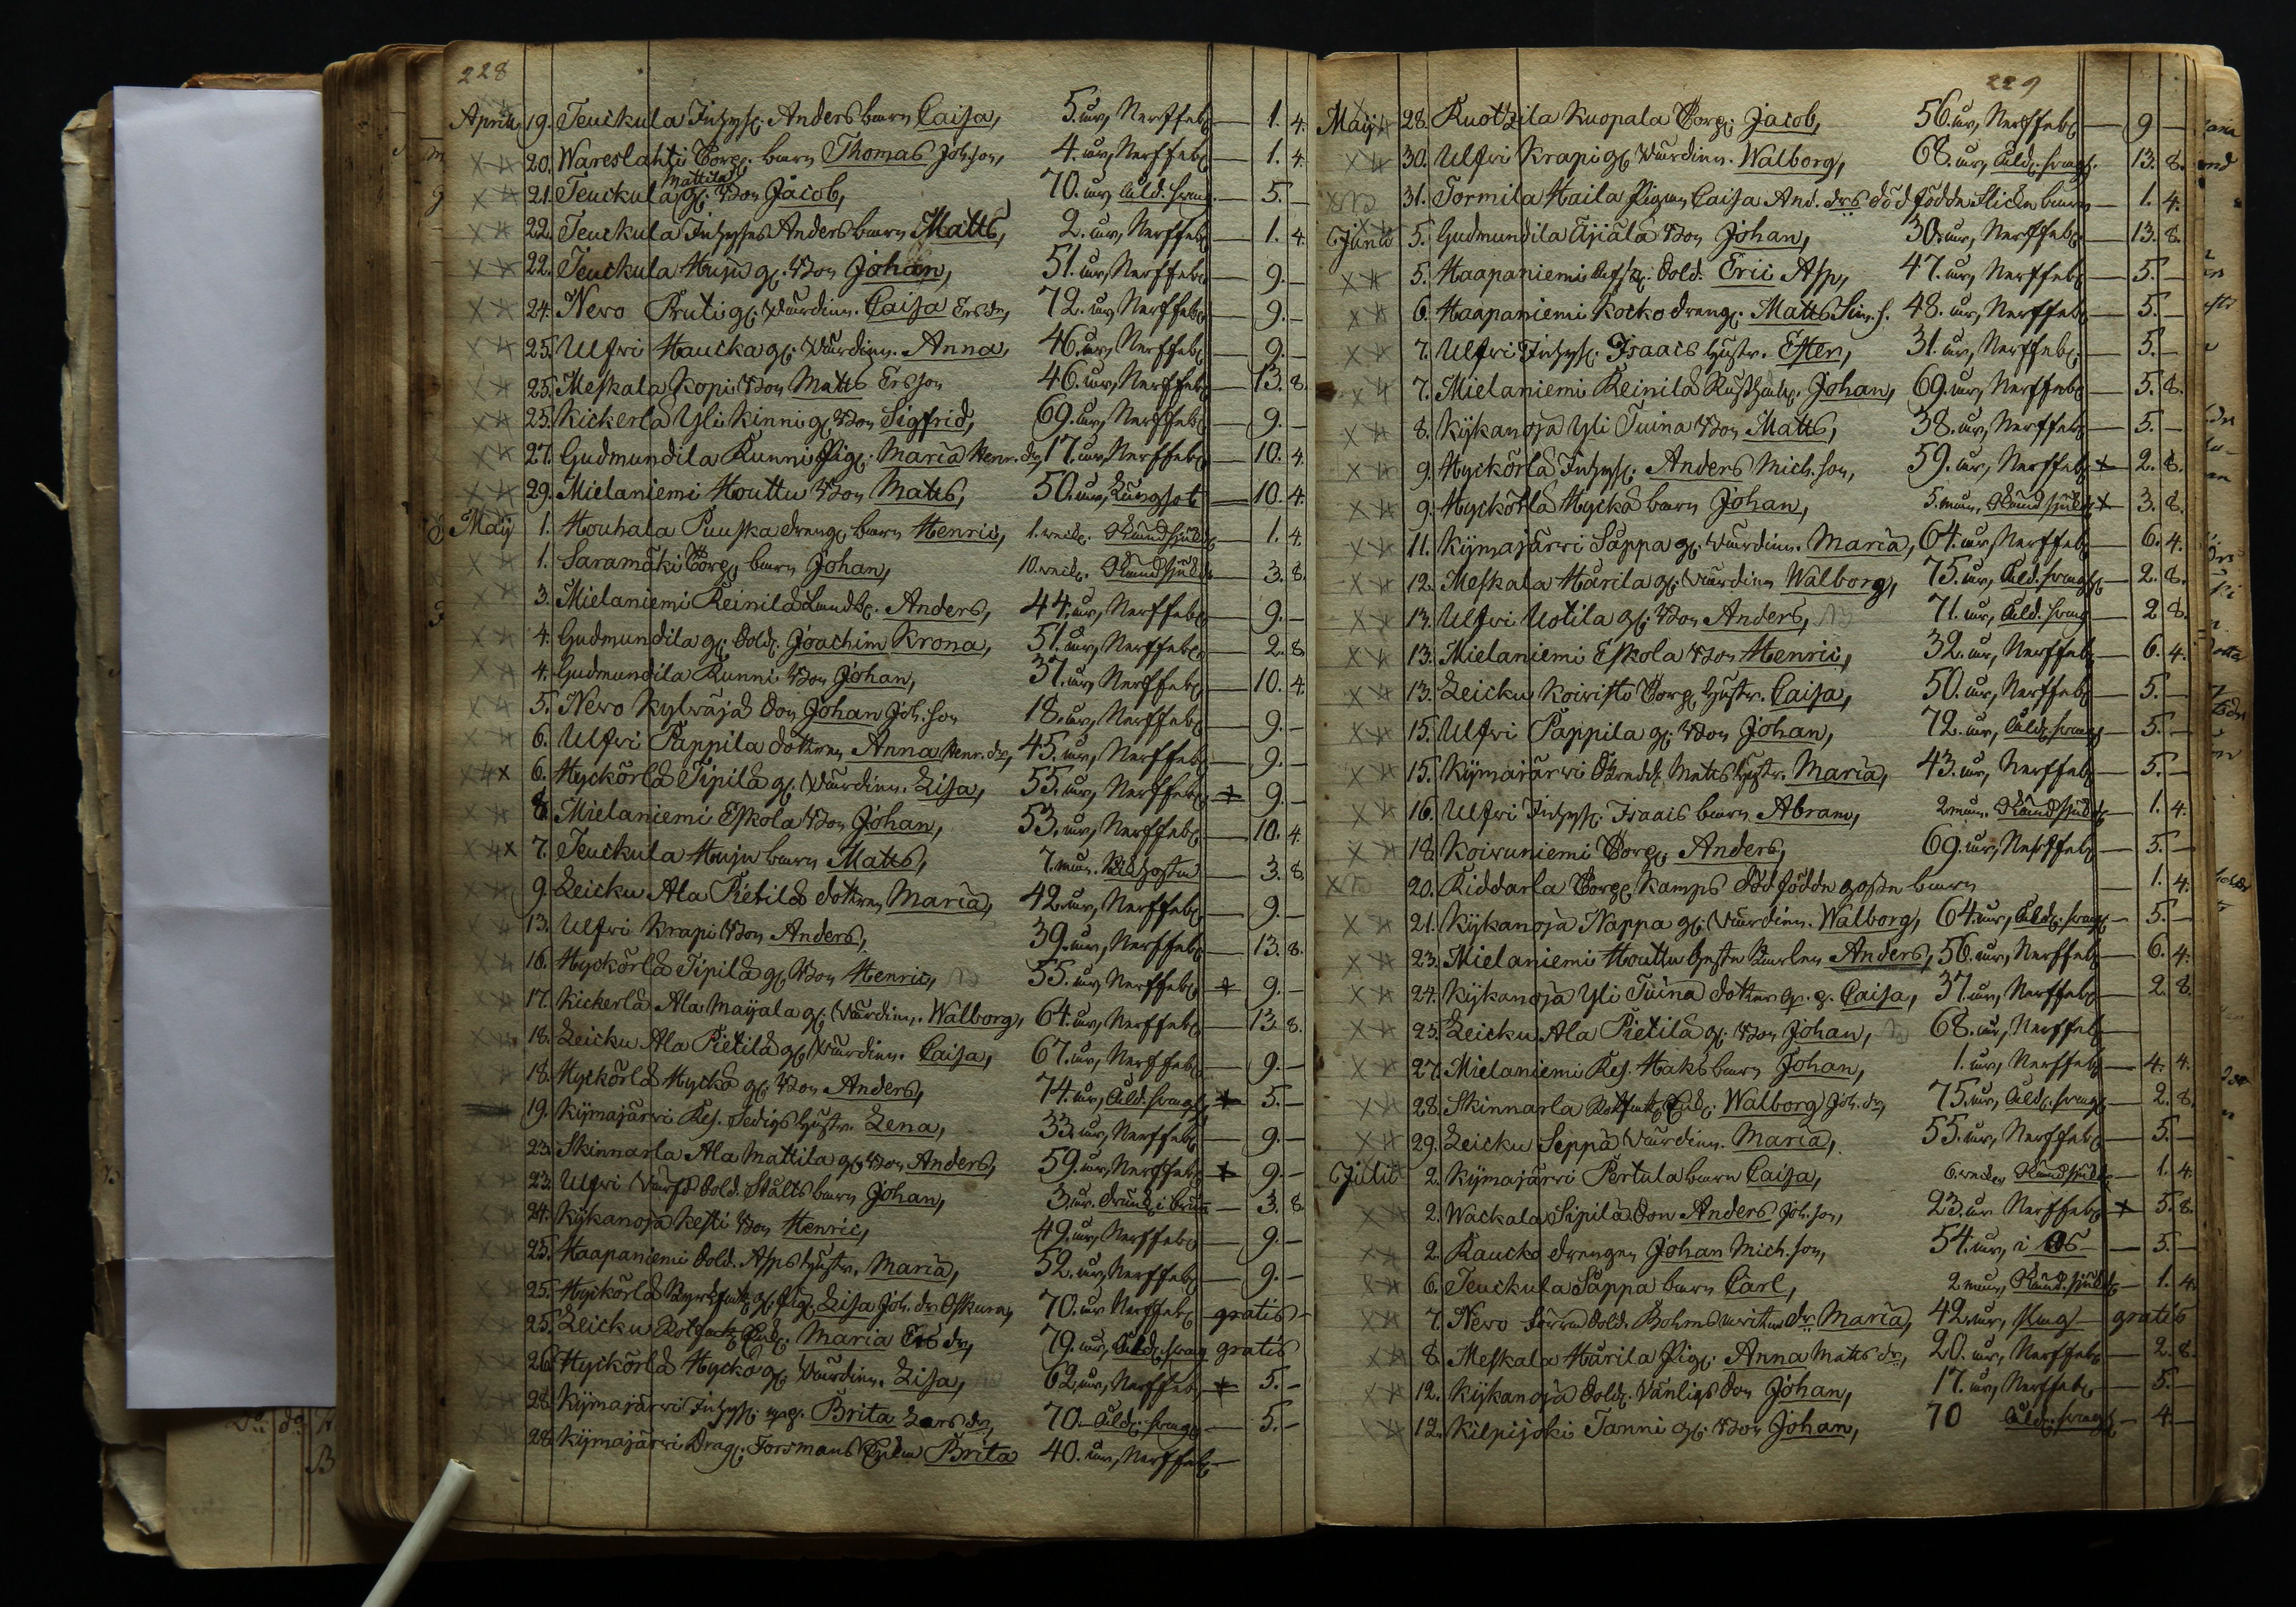 228
April 19. Teuckula Inhys: Anders barn Caisa, 5. år, Nerffeb: — 1. 4.
20. Wareslahti Torp: barn Thomas Joh:son, 4. år, Nerffeb: — 1. 4.
21. Teuckula Mattila gl: Bon Jacob, 70. år, Åld: svagh: — 5. —
22. Teuckula Inhyses Anders barn Matts, 2. år, Nerffeb: — 1. 4.
22. Teuckula Huju gl: Bon Johan, 51. år, Nerffeb: — 9. —
24. Nero Pruti gl: Värdinn. Caisa Ersdr, 72. år, Nerffeb: — 9. —
25. Ulfvi Haucka gl: Värdinn. Anna, 46. år, Nerffeb: — 9. —
25. Meskala Kopi Bon Matts Ersson 46. år, Nerffeb: — 13. 8.
25. Kickerlä Yli Kinni gl: Bon Sigfrid, 69. år, Nerffeb: — 9. —
27. Gudmundila Kunni Pig: Maria Henr. dr, 17. år, Nerffeb: — 10. 4.
29. Mielaniemi Houttu Bon Matts, 50. år, Lungsot — 10. 4.
Maij 1. Houhala Puuska dreng: barn Henric, 1. weck: Okänd sjukd: — 1. 4.
1. Saramäki Torp: barn Johan, 10. weck: Okänd sjukd: — 3. 8.
3. Mielaniemi Reinilä Landb: Anders, 44. år, Nerffeb: — 9. —
4. Gudmundila gl: Sold: Joachim Krona, 51. år, Nerffeb: — 2. 8.
4. Gudmundila Kunni Bon Johan, 37. år, Nerffeb: — 10. 4.
5. Nero Kylväjä Son Johan Joh: son 18. år, Nerffeb: — 9. —
6. Ulfvi Pappila dottren Anna Henr. dr, 45. år, Nerffeb: — 9. —
6. Hyckörlä Sipilä gl: Värdinn. Lisa, 55. år, Nerffeb: + 9. —
8. Mielaniemi Eskola Bon Johan, 53. år, Nerffeb: — 10. 4.
7. Teuckula Huju barn Matts, 7. mån. Kikhosta — 3. 8.
9. Leicku Ala Pietilä dottren Maria, 42. år, Nerffeb: — 9. —
13. Ulfvi Krapi Bon Anders, 39. år, Nerffeb: — 13. 8.
16. Hyckörlä Sipilä gl: Bon Henric, 55. år, Nerffeb: + 9. —
17. Kickerlä Ala Maijala gl: Värdinn. Walborg, 64. år, Nerffeb: — 13. 8.
18. Leicku Ala Pietilä gl: Värdinn. Caisa, 67. år, Nerffeb: — 9. —
18. Hyckörlä Hyckä gl: Bon Anders, 74. år, Åld: svagh: + 5. —
19. Kijmajärvi Res. Sedigs hustr. Lena, 33. år, Nerffeb: — 9. —
23. Skinnarla Ala Mattila gl: Bon Anders, 59. år, Nerffeb: + 9. —
23. Ulfvi Sold: Stålts barn Johan, 3. år. Drunk: i brun — 3. 8.
24. Kijkanoja Kesti Bon Henric, 49. år, Nerffeb: — 9. —
25. Haapaniemi Sold. Asps hustr. Maria, 52. år, Nerffeb: — 9. —
25. Hyckörlä gl: Pig: Lisa Joh: dr 70. år Nerffeb: gratis —
25. Leicku Rotfatt: Enk: Maria Ers dr, 79. år, Åld: svag gratis
26. Hyckörlä Hyckä gl: Värdinn. Lisa, 62. år, Nerffeb: + 5. —
28. Kijmajärvi Inhys: Brita Lars dr, 70. — Åld: svagh: — 5. —
28. Kijmajärvi Drag: Forsmans Enka Brita 40. år, Nerffeb: —
229
Maij 28. Ruotzila Kuopala Torp: Jacob, 56. år, Nerffeb: — 9 —
30. Ulfvi Krapi gl: Värdinn. Walborg, 68. år, Åld: svagh: — 13. 8.
31. Tormila Haila Pigan Caisa And. drs död födde flicke barn — 1. 4.
Junii 5. Gudmundila Äjiälä Bon Johan, 30. år, Nerffeb: — 13. 8.
5. Haapaniemi Afsk: Sold: Eric Asp, 47. år, Nerffeb: — 5. —
6. Haapaniemi Kocko dreng: Matts Sim. s. 48. år, Nerffeb: — 5. —
7. Ulfvi Inhys: Isaacs hustr. Ester, 31. år, Nerffeb: — 5. —
7. Mielaniemi Reinilä Rusth: Johan, 69. år, Nerffeb: — 5. 8.
8. Kijkanoja Yli Tuina Bon Matts, 38. år, Nerffeb: — 5. —
9. Hyckörlä Inhys: Anders Mich. son, 59. år, Nerffeb: + 2. 8.
9. Hyckörlä Hyckä barn Johan, 5. mån, Okänd sjukd: + 3. 8.
11. Kijmajärvi Säppä gl: Värdinn. Maria, 64. år, Nerffeb: — 6. 4.
12. Meskala Härilä gl: Värdinn Walborg, 75. år, Åld: svagh: — 2. 8.
13. Ulfvi Uotila gl: Bon Anders, 71. år, Åld: svag — 2 8.
13. Mielaniemi Eskola Bon Henric, 32. år, Nerffeb: — 6. 4.
13. Leicku Koivisto Torp: hustr. Caisa, 50. år, Nerffeb: — 5. —
15. Ulfvi Pappila gl: Bon Johan, 72. år, Åld: svagh: — 5. —
15. Kijmajärvi Matts hustr. Maria, 43. år, Nerffeb: — 5. —
16. Ulfvi Inhys: Isaacs barn Abram, 2. mån. Okänd sjukd: — 1. 4.
18. Koivuniemi Torp: Anders, 69. år, Nerffeb: — 5. —
20. Riddarla Torp: Kamps död födde gosse barn — 1. 4.
21. Kijkanoja Nappa gl: Värdinn. Walborg, 64. år, Åld: svagh: — 5. —
23. Mielaniemi Houttu Karlen Anders, 56. år, Nerffeb: — 6. 4.
24. Kijkanoja Yli Tuina dotter Caisa, 37. år, Nerffeb: — 2. 8.
25. Leicku Ala Pietilä gl: Bon Johan, 68. år, Nerffeb:
27. Mielaniemi Res. Haks barn Johan, 1. år, Nerffeb: — 4. 4.
28. Skinnarla Rotfatt: Enk: Walborg Joh. dr, 75. år, Åld: svagh: — 2. 8.
29. Leicku Seppä Värdinn. Maria, 55. år, Nerffeb: — 5. —
Julii 2. Kijmajärvi Pertula barn Caisa, 6. weckor Okänd sjukd: — 1. 4.
2. Wackala Sipilä Son Anders Joh. son, 23. år Nerffeb: + 5. 8.
2. Raucko drengen Johan Mich. son, 54. år, i — 5. —
6. Teuckula Säppä barn Carl, 2. mån, Okänd sjukd: — 1. 4.
7. Nero Sold. Bohms dr Maria, 42. år, slag — gratis
8. Meskala Härilä Pig: Anna Matts dr, 20. år, Nerffeb: — 2. 8.
12. Kijkanoja Sold: Vänligs Son Johan, 17. år, Nerffeb: — 5. —
12. Kilpijoki Tanni gl: Bon Johan, 70 Åld: svagh: — 4. —